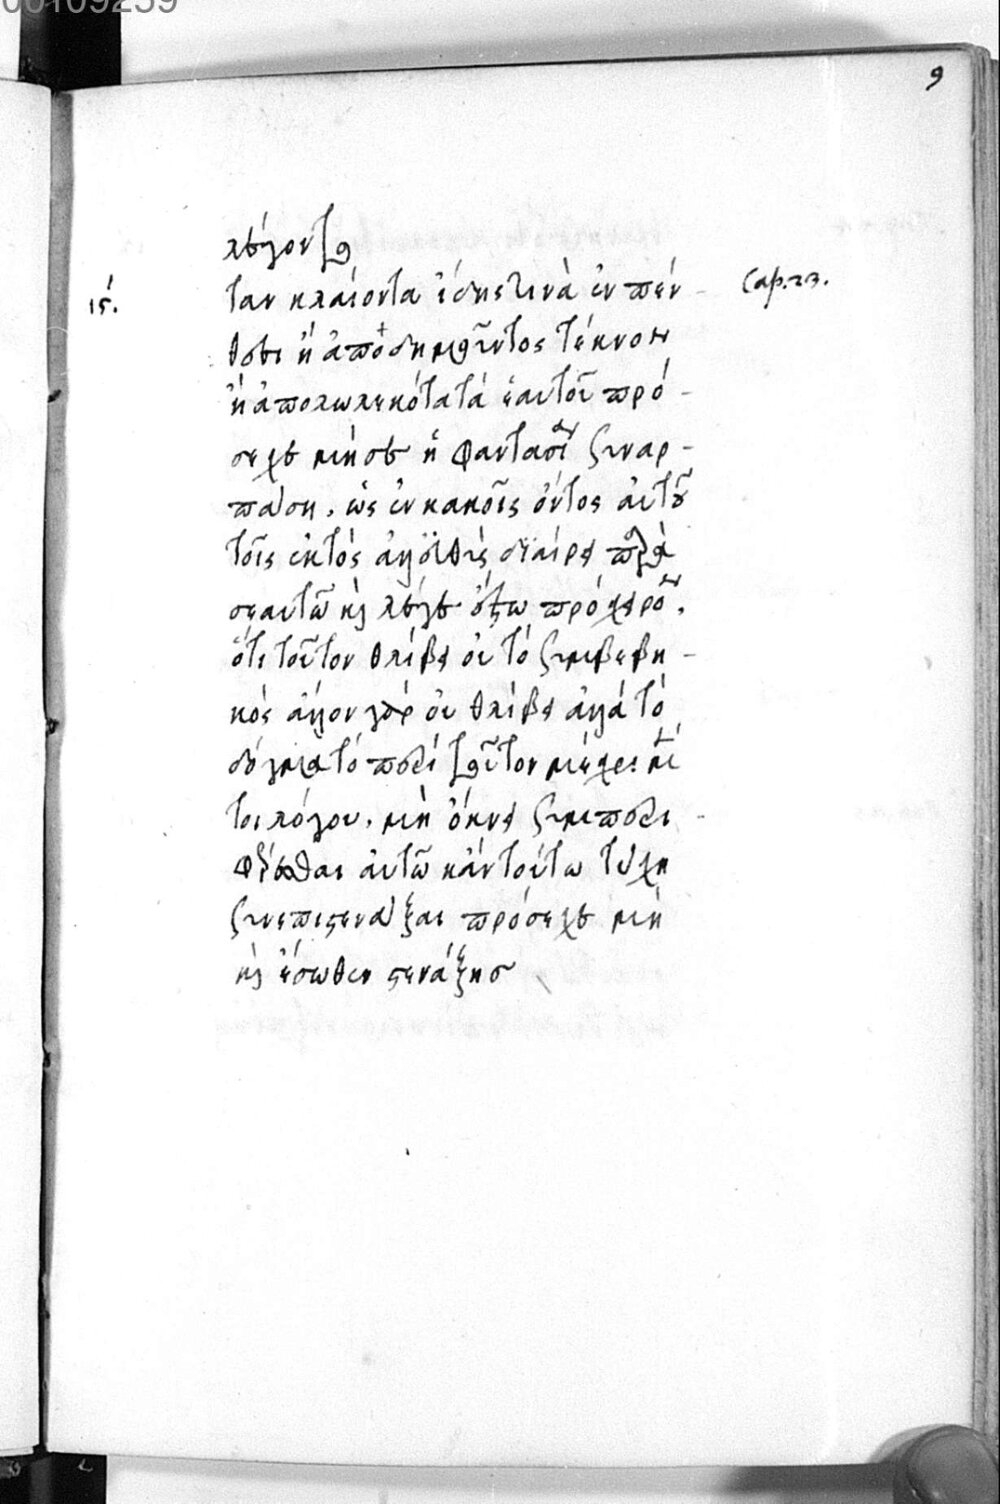 00109259
9
λέγονται
ιϛ΄. Ὅταν κλαίοντα ἴδης τινὰ ἐν πέν- Cap. 23.
θει ἢ ἀποδημοῦντος τέκνου
ἢ ἀπολωλεκότα τὰ ἑαυτοῦ πρό-
σεχε μή σε ἡ φαντασία συναρ-
πάση, ὡς ἐν κακοῖς ὄντος αὐτοῦ
τοῖς ἐκτός ἀλλ' εὐθὺς διαίρει παρὰ
σεαυτῶ καὶ λέγε ἔστω πρόχειρον,
ὅτι τοῦτον θλίβει οὐ τὸ συμβεβη-
κός ἄλλον γὰρ οὐ θλίβει ἀλλὰ τὸ
δόγμα τὸ περὶ τοῦτον μέχρι μέν
τοι λόγου, μὴ ὄκνει συμπερι-
φέρεσθαι αὐτῶ κἂν τούτω τύχη
συνεπιστενάξαι πρόσεχε μὴ
καὶ ἔσωθεν στενάξης